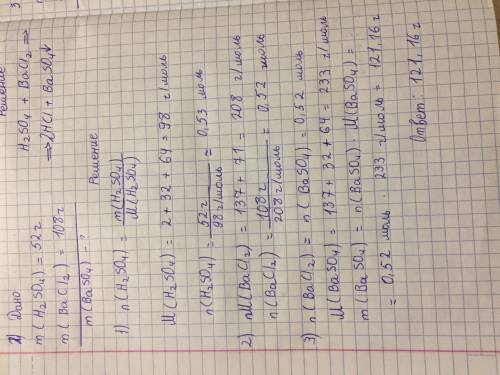 Решение
2) Дано
m(H₂SO₄) = 52г
m(BaCl₂) = 108г
m(BaSO₄) - ?
H₂SO₄ + BaCl₂ =>
=> 2HCl + BaSO₄↓
Решение
1) n(H₂SO₄) = m(H₂SO₄) / M(H₂SO₄)
M(H₂SO₄) = 2 + 32 + 64 = 98 г/моль
n(H₂SO₄) = 52г / 98 г/моль = 0,53 моль
2) M(BaCl₂) = 137 + 71 = 208 г/моль
n(BaCl₂) = 108г / 208 г/моль = 0,52 моль
3) n(BaCl₂) = n(BaSO₄) = 0,52 моль
M(BaSO₄) = 137 + 32 + 64 = 233 г/моль
m(BaSO₄) = n(BaSO₄) · M(BaSO₄) =
= 0,52 моль · 233 г/моль = 121,16 г
Ответ: 121,16 г